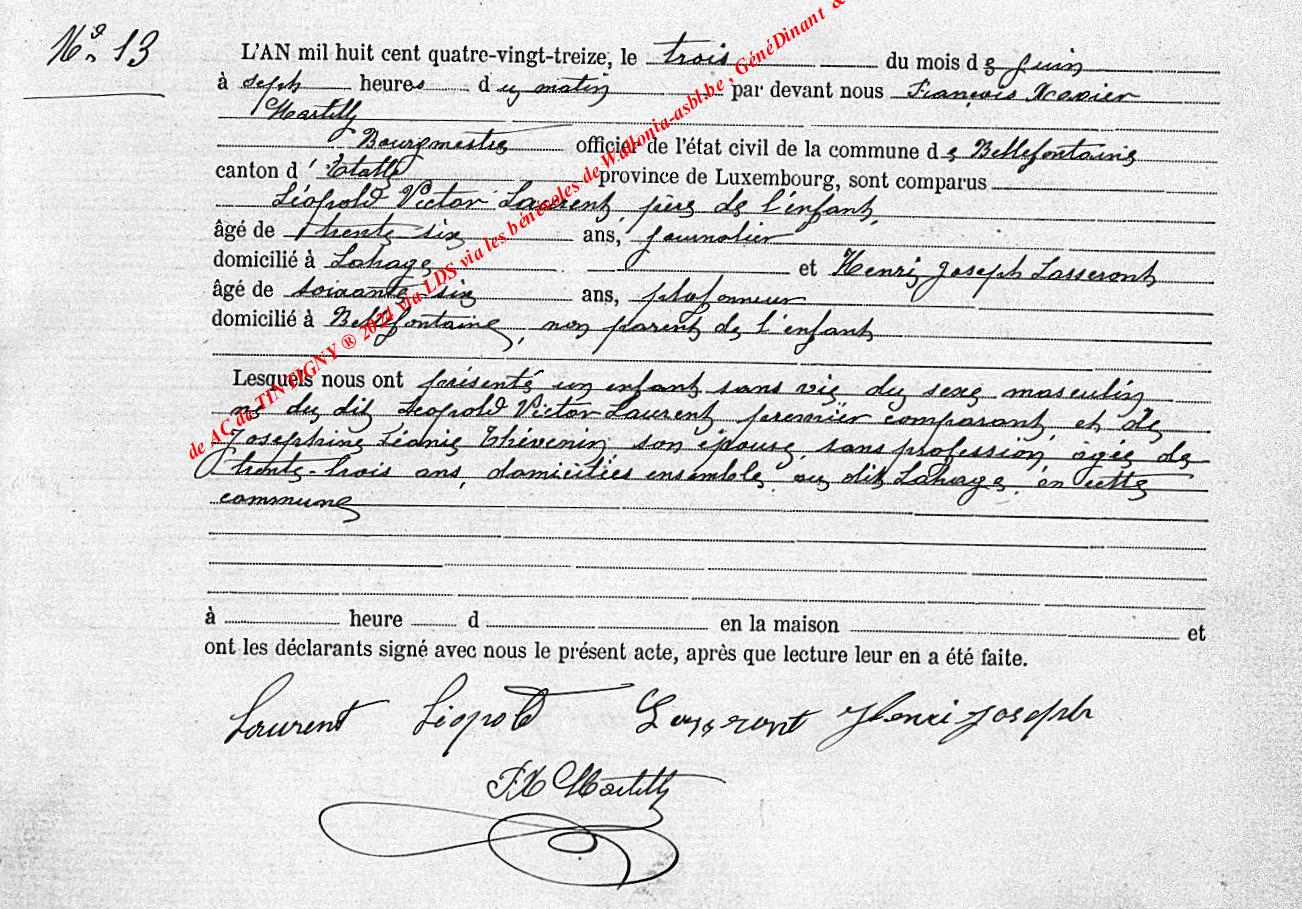 N° 13
L'AN mil huit cent quatre-vingt-treize, le trois du mois de Juin
à sept heures du matin par devant nous François Xavier
Martilly
Bourgmestre officier de l'état civil de la commune de Bellefontaine
canton d'Etalle province de Luxembourg, sont comparus
Léopold Victor Laurent, père de l'enfant,
âgé de trente six ans, journalier
domicilié à Lahage et Henri Joseph Lasseront
âgé de soixante six ans, plafonneur
domicilié à Bellefontaine, non parent de l'enfant
Lesquels nous ont présenté un enfant sans vie du sexe masculin
né du dit Léopold Victor Laurent premier comparant, et de
Josephine Léonie Thévenin, son épouse, sans profession, âgée de
trente-trois ans, domiciliés ensemble au dit Lahage, en cette
commune
à heure d en la maison et
ont les déclarants signé avec nous le présent acte, après que lecture leur en a été faite.
Laurent Léopold Lasseront Henri Joseph
FX Martilly
de AC de TINTIGNY ® 2021 via LDS via les bénévoles de Wallonia-asbl.be , GénéDinant &